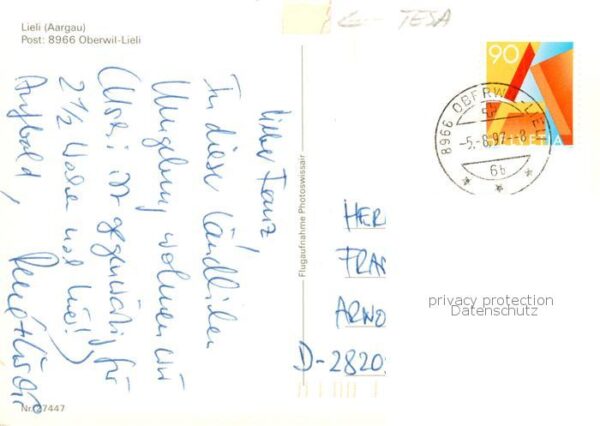 Lieli (Aargau)
Post: 8966 Oberwil-Lieli
← TESA
90
HELVETIA
8966 OBERWIL-LIELI
-5.-8.97--8
Lieber Franz,
In dieser ländlichen
Umgebung wohnen wir
(Uschi ist gegenwärtig für
2 1/2 Wochen
Auf bald,
Flugaufnahme Photoswissair
HER
FRAN
ARNO
D-2820
privacy protection
Datenschutz
Nr. 27447